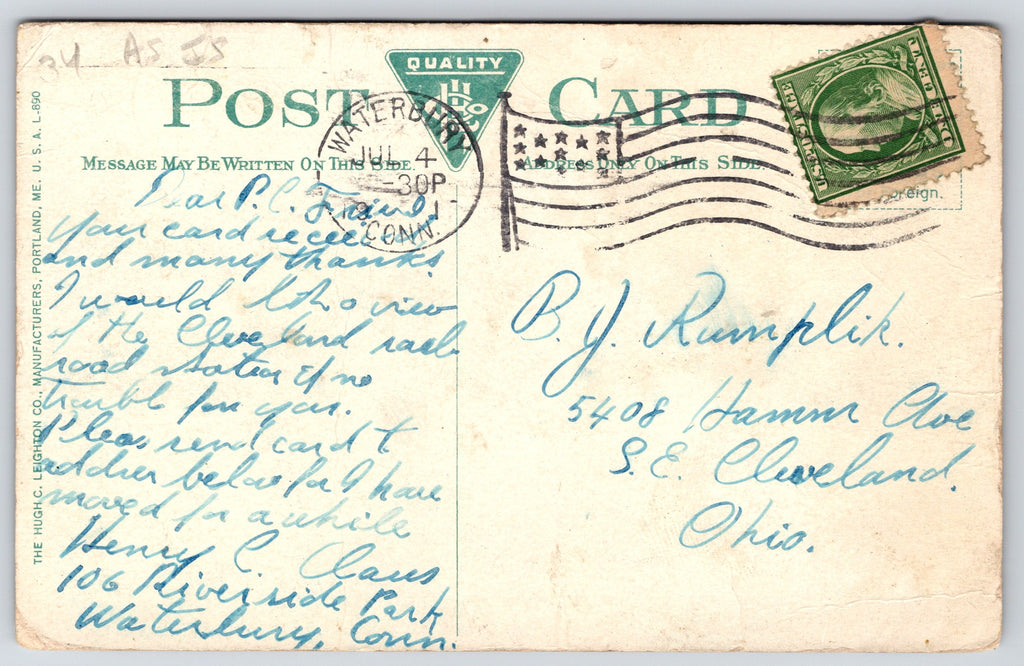 34 AS IS
POST CARD
QUALITY
MESSAGE MAY BE WRITTEN ON THIS SIDE.
ADDRESS ONLY ON THIS SIDE.
WATERBURY
JUL 4
-30P
CONN.
U.S. POSTAGE
ONE CENT
oreign.
THE HUGH C. LEIGHTON CO., MANUFACTURERS, PORTLAND, ME. U. S. A. L-890
Dear P.C. Friend
Your card received
and many thanks.
I would like a view
of the Cleveland rail
road station if no
trouble for you.
Pleas send card t
address below for I have
moved for a while
Henry C Claus
106 Riverside Park
Waterbury, Conn.
B. J. Rumplik.
5408 Hamm Ave
S.E. Cleveland.
Ohio.